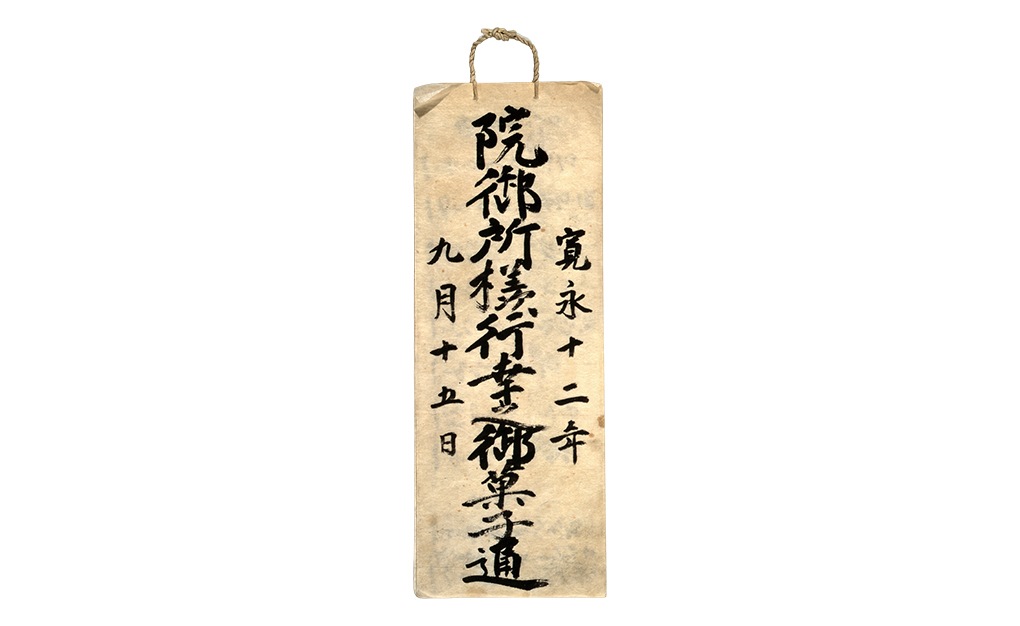 寛永十二年
院御所様行幸之御菓子通
九月十五日